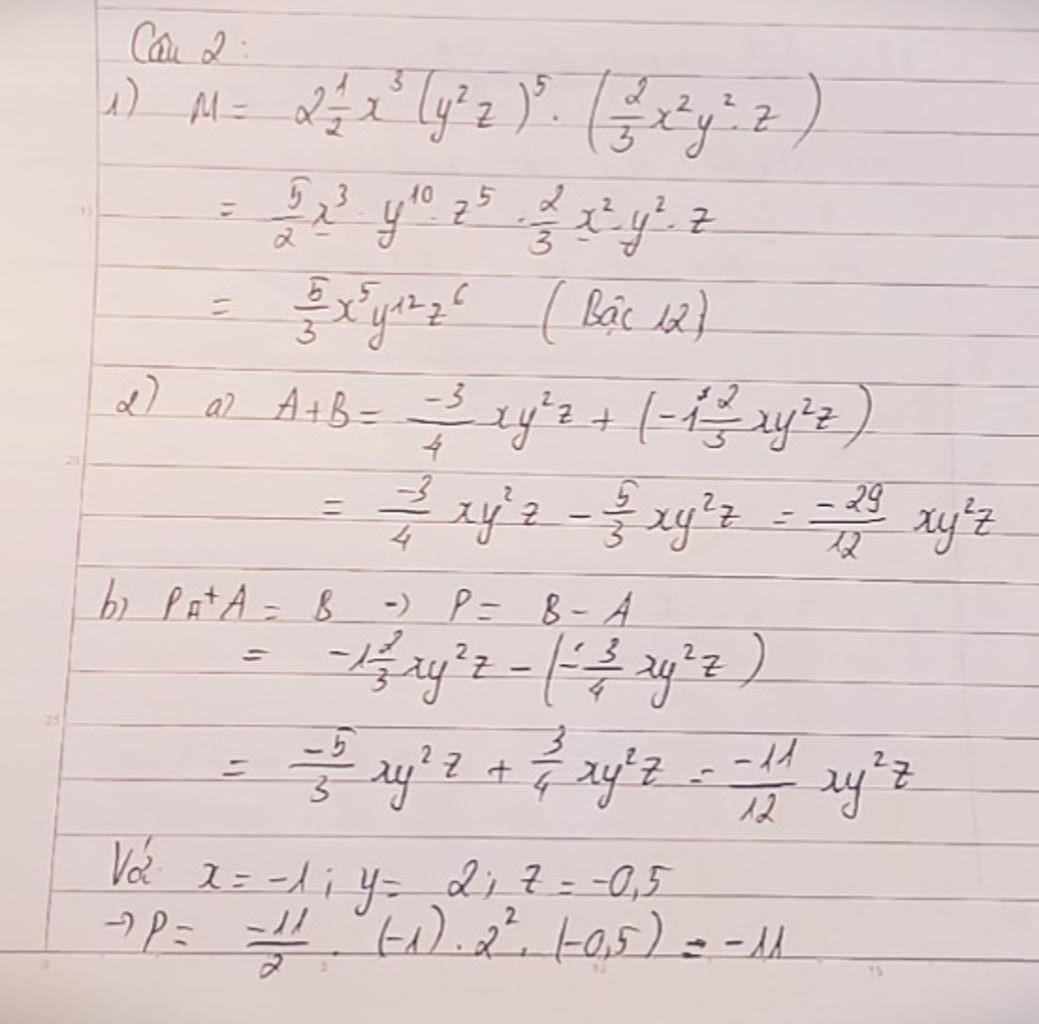 Câu 2:
1) M = 2 1/2 x³ (y²z)⁵ . (2/3 x²y² . z)
= 5/2 x³ . y¹⁰ . z⁵ . 2/3 x² . y² . z
= 5/3 x⁵y¹²z⁶ (Bậc 12)
2) a) A+B = -3/4 xy²z + (-1 2/3 xy²z)
= -3/4 xy²z - 5/3 xy²z = -29/12 xy²z
b) P + A = B → P = B - A
= -1 2/3 xy²z - (-3/4 xy²z)
= -5/3 xy²z + 3/4 xy²z = -11/12 xy²z
Với x = -1; y = 2; z = -0,5
→ P = -11/2 . (-1) . 2² . (-0,5) = -11